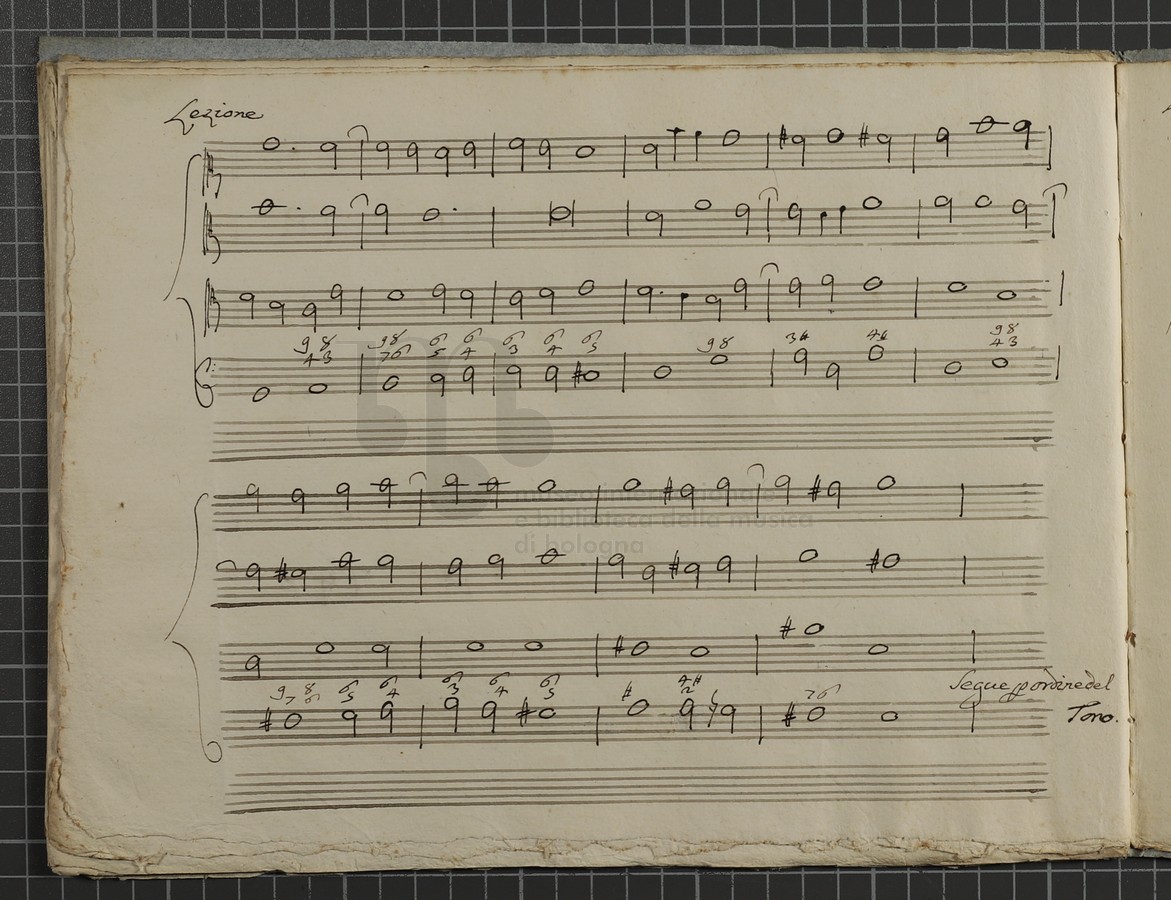 Lezione
9 8
4 3
9 8
7 6
6
5
6
4
6
3
6
4
6
5
9 8
3#
4#
9 8
4 3
museo internazionale
e biblioteca della musica
di bologna
9 8
7 6
6
5
6
4
6
3
6
4
6
5
#
4#
2
6
7 6
Segue per ordine del
Tono.